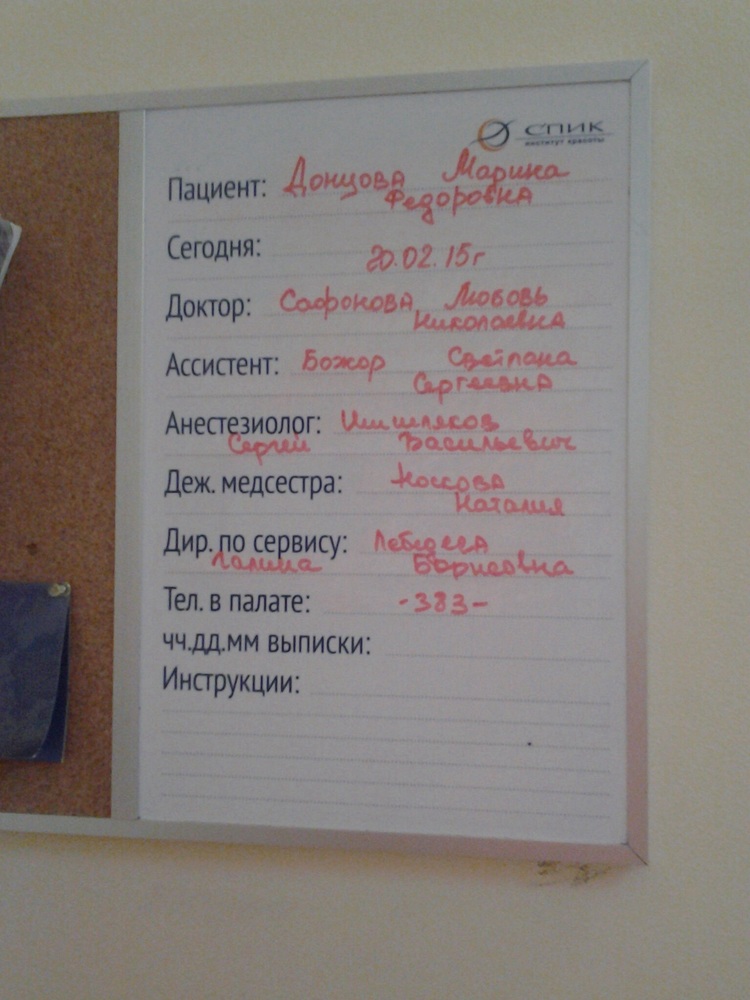 СПИК
институт красоты
Пациент: Донцова Марина
Федоровна
Сегодня: 20.02.15г
Доктор: Сафонова Любовь
Николаевна
Ассистент: Божор Светлана
Сергеевна
Анестезиолог:
Сергей Васильевич
Деж. медсестра: Носкова
Наталия
Дир. по сервису: Лебедева
Галина Борисовна
Тел. в палате: -383-
чч.дд.мм выписки:
Инструкции: